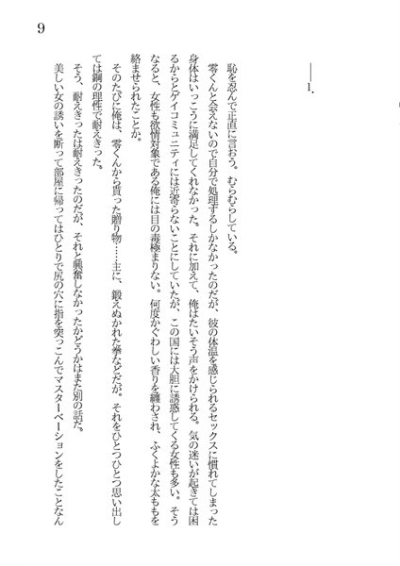 9
――1.
恥を忍んで正直に言おう。むらむらしている。
零くんと会えないので自分で処理するしかなかったのだが、彼の体温を感じられるセックスに慣れてしまった
身体はいっこうに満足してくれなかった。それに加えて、俺はたいそう声をかけられる。気の迷いが起きては困
るからとゲイコミュニティには近寄らないことにしていたが、この国には大胆に誘惑してくる女性も多い。そう
なると、女性も欲情対象である俺には目の毒極まりない。何度かぐわしい香りを纏わされ、ふくよかな太ももを
絡ませられたことか。
そのたびに俺は、零くんから貰った贈り物……主に、鍛えぬかれた拳などだが。それをひとつひとつ思い出し
ては鋼の理性で耐えきった。
そう、耐えきったは耐えきったのだが、それと興奮しなかったかどうかはまた別の話だ。
美しい女の誘いを断って部屋に帰ってはひとりで尻の穴に指を突っこんでマスターベーションをしたことなん